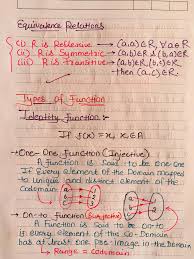 Equivalence Relations
(i) R is Reflexive → (a,a)∈R, ∀a∈R
(ii) R is Symmetric → (a,b)∈R,(b,a)∈R
(iii) R is Transitive → (a,b)∈R & (b,c)∈R
then (a,c)∈R
Types of Function
→ Identity function :-
If f(x)=x, x∈A
→ One-One function (Injective)
A function is said to be one-one
If every element of the Domain mapped
to unique and distinct element of the
Codomain.
a
b
c
1
2
3
→ On-to function (Surjective)
A function is said to be onto
is every element of the Co-Domain
has at least one pre-image in the Domain
↳ Range = Codomain